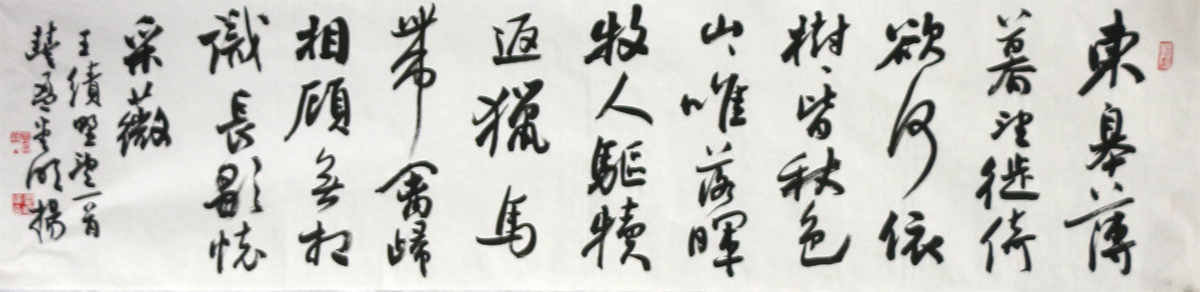 東皋薄
暮望徙倚
欲何依
樹々皆秋色
山々唯落暉
牧人驅犢
返獵馬
帶禽歸
相顧無相
識長歌懷
采薇
王績野望一首